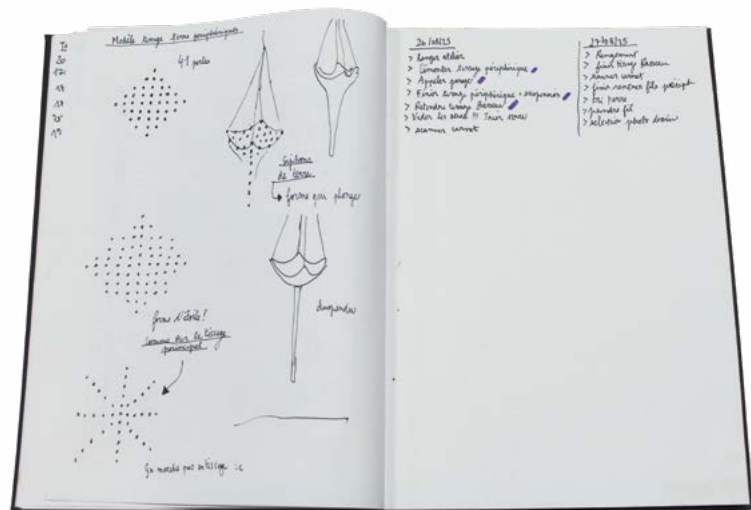 Modèle tissage terre périphériques
41 perles
Siphons
de terre
forme qui plonge
suspendu
forme d'étoile!
comme sur le tissage
principal
Ça marche pas en tissage :c
26/08/25
> Ranger atelier
> Démonter tissage périphérique
> Appeler garage
> Finir tissage périphérique + suspension
> Retendre tissage Basson
> Vider les seaux !!! Trier terre
> scanner carnet
27/08/25
> Rangement
> finir tissage Basson
> scanner carnet
> finir rentrer fils périph
> tri terre
> prendre fil
> sélection photo dessin